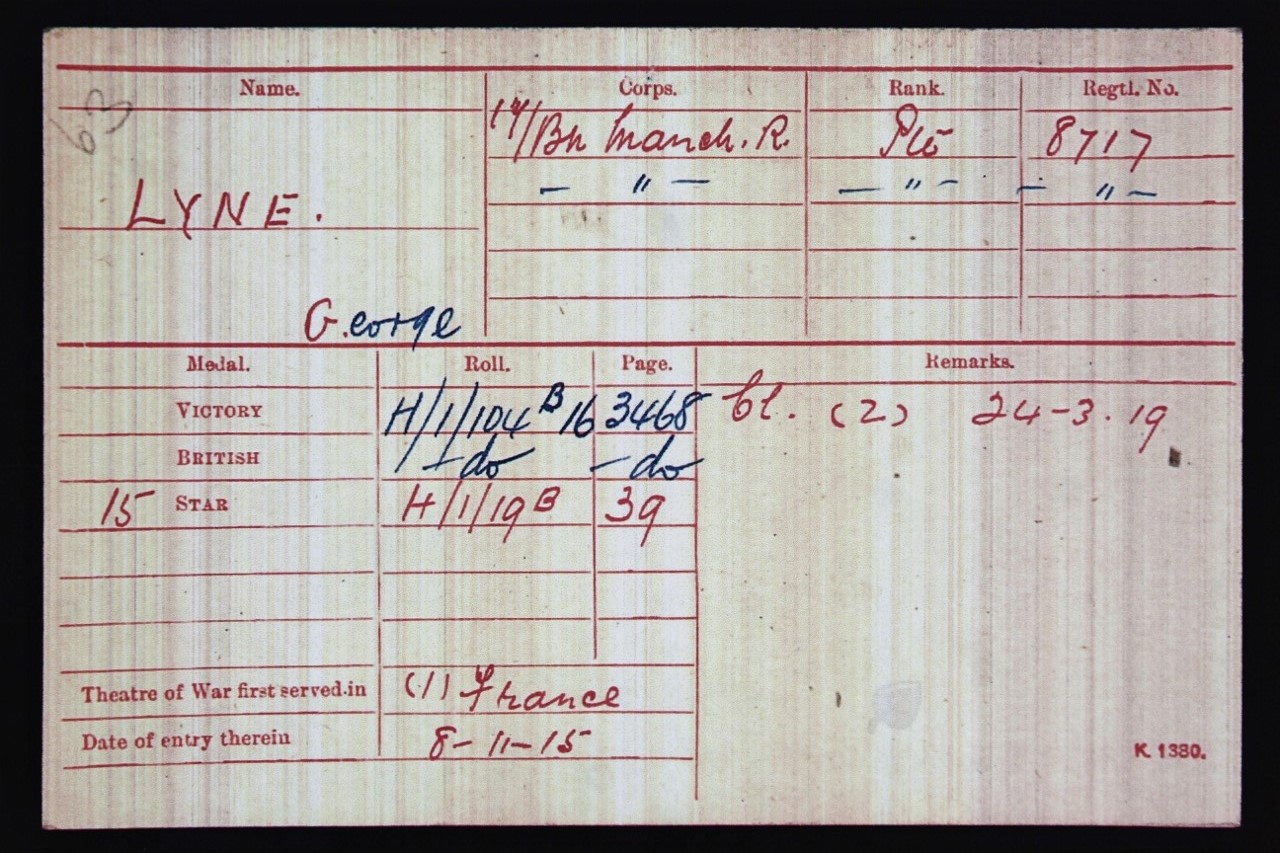 Name. Corps. Rank. Regtl. No.
63
17/Bn Manch. R. Pte 8717
— " — — " — — " —
LYNE.
G.eorge
Medal. Roll. Page. Remarks.
VICTORY H/1/104 B 16 3468 Cl. (2) 24-3.19
BRITISH - do - do
15 STAR H/1/19 B 39
Theatre of War first served in (1) France
Date of entry therein 8-11-15
K. 1380.